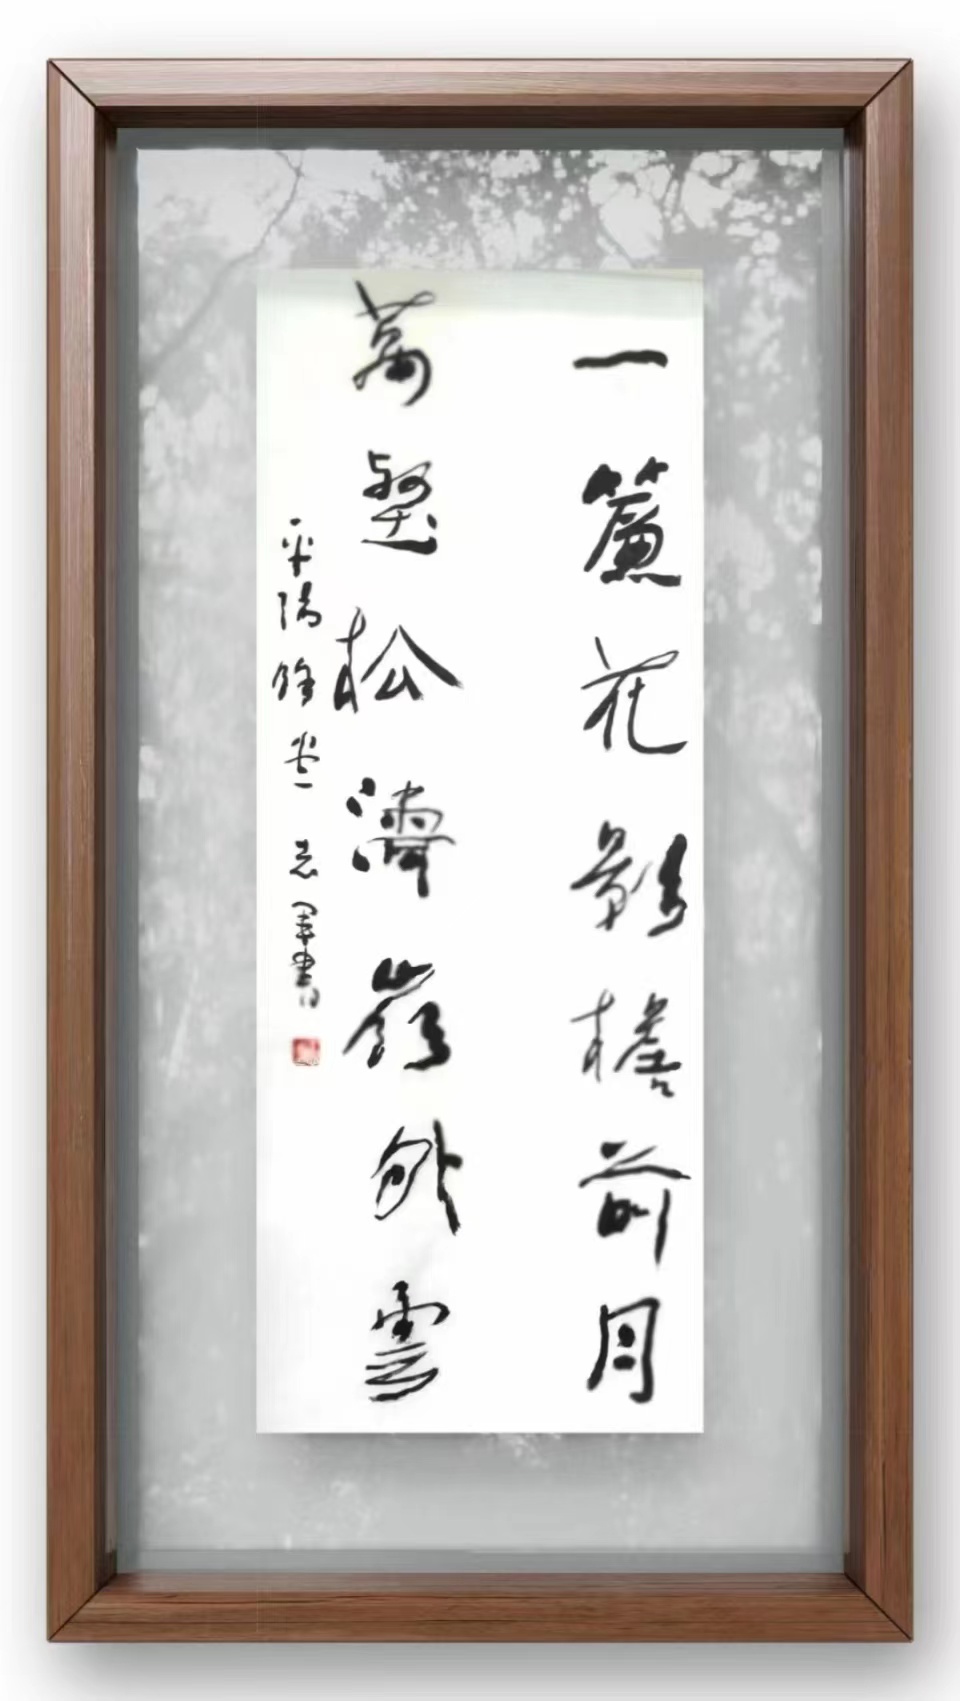 一簾花影檐前月
萬壑松濤嶺外雲
平陽 堂 志軍書